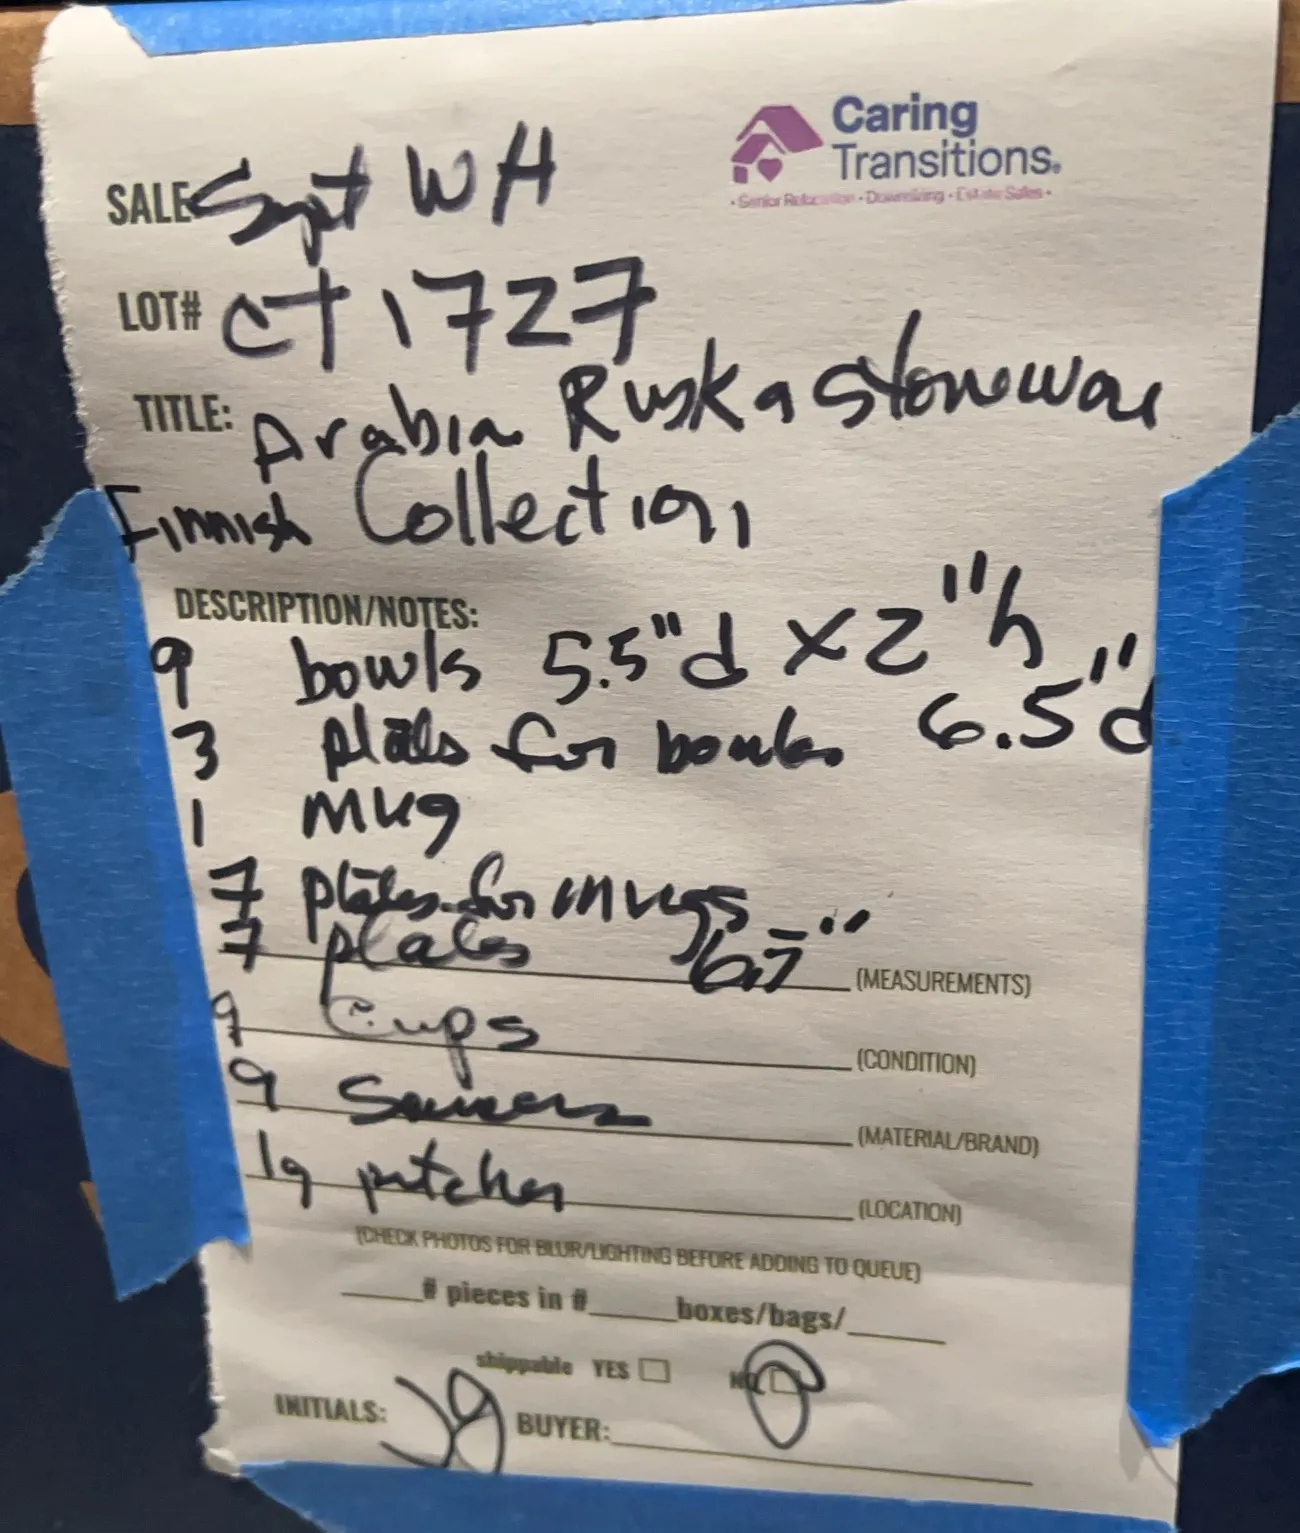 Caring
Transitions.
• Senior Relocation • Downsizing • Estate Sales •
SALE Sept WH
LOT# CT 1727
TITLE: Arabia Ruska Stoneware
Finnish Collection
DESCRIPTION/NOTES:
9 bowls 5.5"d x 2"h
3 plates for bowls 6.5"d
1 mug
7 plates for mugs
7 plates 6.7" (MEASUREMENTS)
9 Cups (CONDITION)
9 Saucers (MATERIAL/BRAND)
pitcher (LOCATION)
(CHECK PHOTOS FOR BLUR/LIGHTING BEFORE ADDING TO QUEUE)
# pieces in # boxes/bags/
shippable YES NO
INITIALS: BUYER: